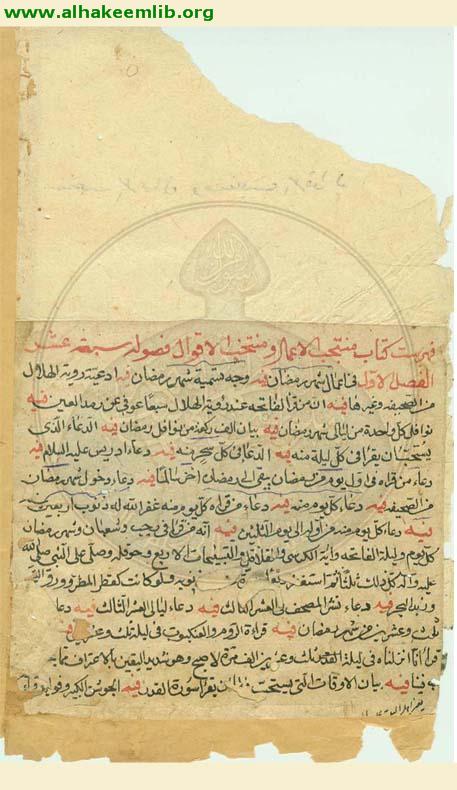 www.alhakeemlib.org
فهرست كتاب منتخب الاعمال ومنتخب الاقوال فصوله سبعة عشر
الفصل الاول في اعمال شهر رمضان فيه وجه تسمية شهر رمضان فيه ادعية رؤية الهلال
من الصحيفه وغيرها فيه ان من قرأ الفاتحه عند رؤية الهلال سبعا عوفي من رمد العين فيه
نوافل كل واحدة من ليالي شهر رمضان فيه بيان الف ركعة من نوافل رمضان فيه الدعاء الذي
يستحب ان يقرأ في كل ليلة منه فيه الدعاء في كل سحر منه فيه دعاء ادريس عليه السلام فيه
دعاء من قراه في اول يوم من رمضان بقي الى رمضان آخر سالما فيه دعاء دخول شهر رمضان
من الصحيفه فيه دعاء كل يوم منه فيه دعاء من قراه كل يوم منه غفر الله له ذنوب اربعين سنه
فيه دعاء كل يوم منه من اوله الى يوم الثلثين فيه انه من قرأ في رجب وشعبان وشهر رمضان
كل يوم وليلة الفاتحه وآية الكرسي والقلاقل والتسبيحات الاربع وحوقله وصلى على النبي صلى الله
عليه وآله كل ذلك ثلثا ثم استغفر ذنوبه فلو كانت كقطر المطر وورق
وزبد البحر فيه دعاء نشر المصحف في العشر الثالث فيه دعاء ليالي العشر الثالث فيه دعاء
ثلث وعشرين من شهر رمضان فيه قراءة الروم والعنكبوت في ليلة ثلث وعشرين فيه
قرأ انا انزلناه في ليلة القدر ثلث وعشرين الف مرة لاصبح وهو شديد اليقين بالاعتراف فيما
فيه بيان الاوقات التي يستحب ان يقرأ سورة القدر فيه الجوشن الكبير وفوايد قراءة